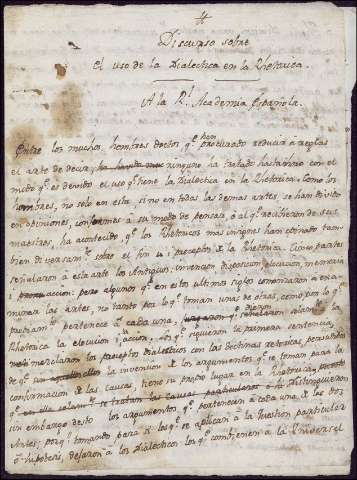 Discurso sobre
el uso de la Dialectica en la Rhetorica.
A la Rl. Academia Española.
Entre los muchos hombres doctos qe. han procurado reducir a reglas
el arte de decir, ninguno ha tratado hasta oi con el
modo qe. es devido el uso qe. tiene la Dialectica en la Rhetorica. Como los
hombres, no solo en esta, si no en todas las demas artes, se han dividido
en opiniones, conformes a su modo de pensar, o al qe. recibieron de sus
maestros, ha acontecido, qe. los Rhetoricos mas insignes han opinado tam-
bien diversamte. sobre el fin i preceptos de la Rhetorica. Cinco partes
señalaron a esta arte los Antiguos, invencion, disposicion, elocucion, memoria
i pronunciacion: pero algunos qe. en estos ultimos siglos comenzaron a exa-
minar las artes, no tanto por lo qe. toman unas de otras, como por lo qe.
pertenece a cada una, dieron solamte. a la
Rhetorica la elocucion, i accion. Los qe. siguieron la primera sentencia,
mezclaron los preceptos dialecticos con las doctrinas retoricas, pensando
de qe. la invencion de los argumentos qe. se toman para la
confirmacion de las causas, tiene su propio lugar en la Rhetorica,
qe. en ella solamte. se tratan las causas particulares. Distinguieron
sin embargo desto los argumentos qe. pertenecen a cada una de las dos
Artes; porqe. tomando para si los qe. se aplican a la question particular
o hipotesis, dejaron a los Dialecticos los qe. combienen a la Universal